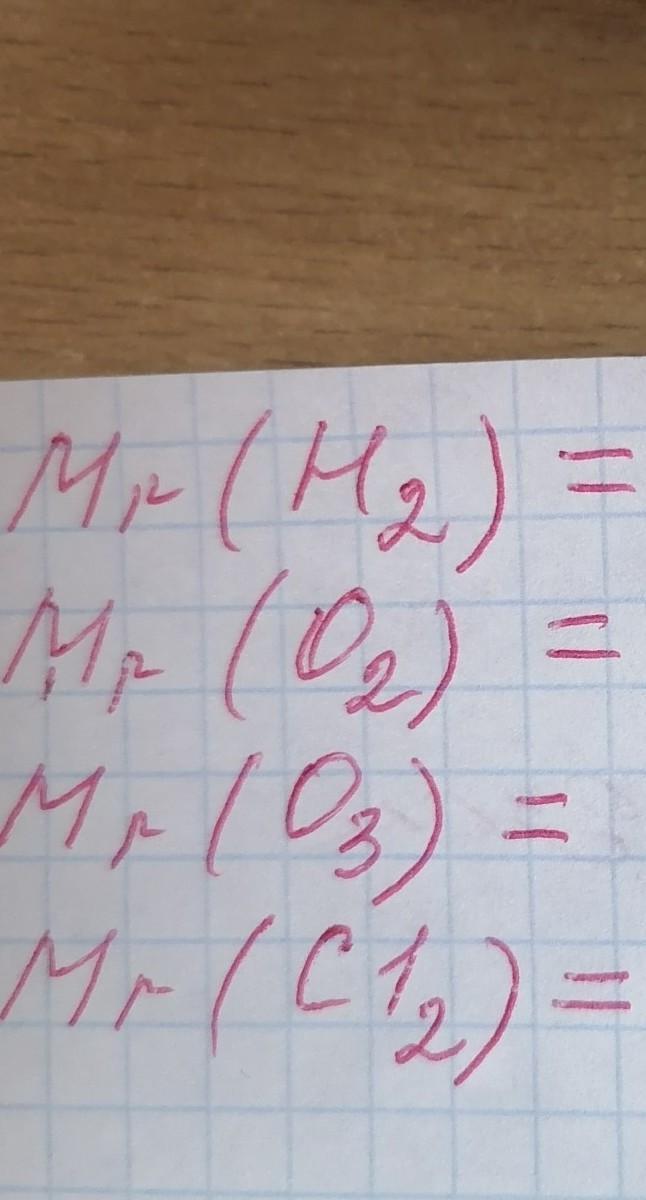 Mr(H₂)=
Mr(O₂)=
Mr(O₃)=
Mr(Cl₂)=